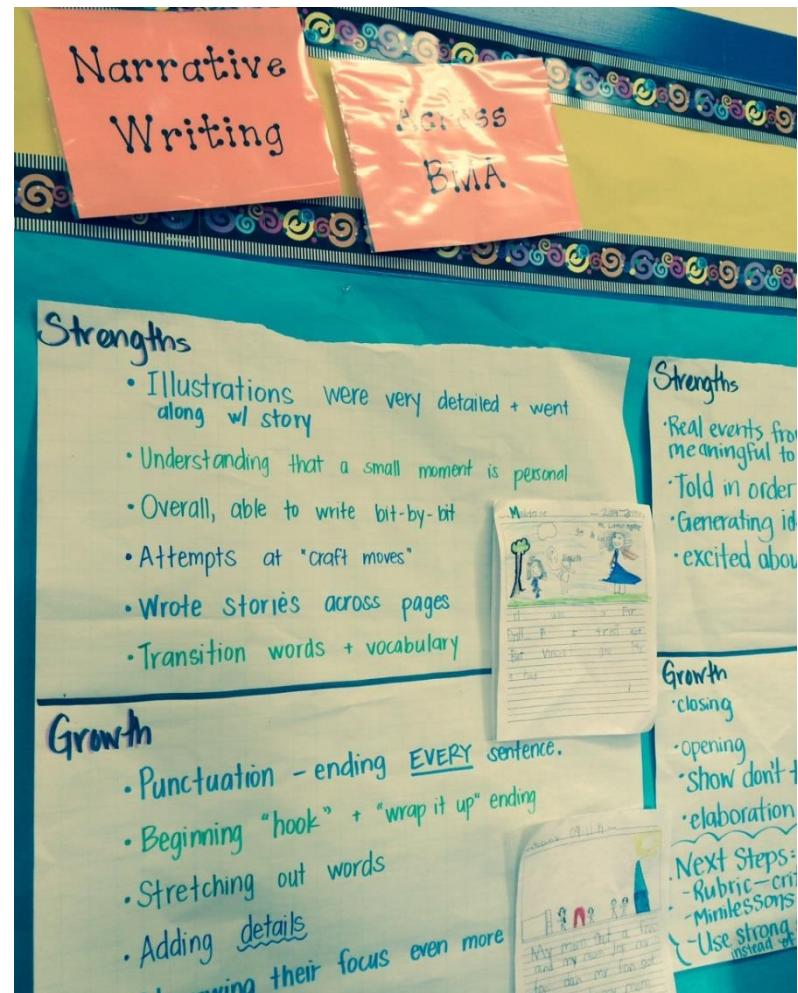 Narrative
Writing
Across
BMA
Strengths
• Illustrations were very detailed + went
along w/ story
• Understanding that a small moment is personal
• Overall, able to write bit-by-bit
• Attempts at "craft moves"
• Wrote stories across pages
• Transition words + vocabulary
Growth
• Punctuation - ending EVERY sentence.
• Beginning "hook" + "wrap it up" ending
• Stretching out words
• Adding details
their focus even more
Strengths
• Real events
meaningful to
• Told in order
• Generating
• excited
Growth
• closing
• opening
• show don't
• elaboration
• Next Steps:
- Rubric -
- Minilessons
- Use strong
instead of
My mom
and my